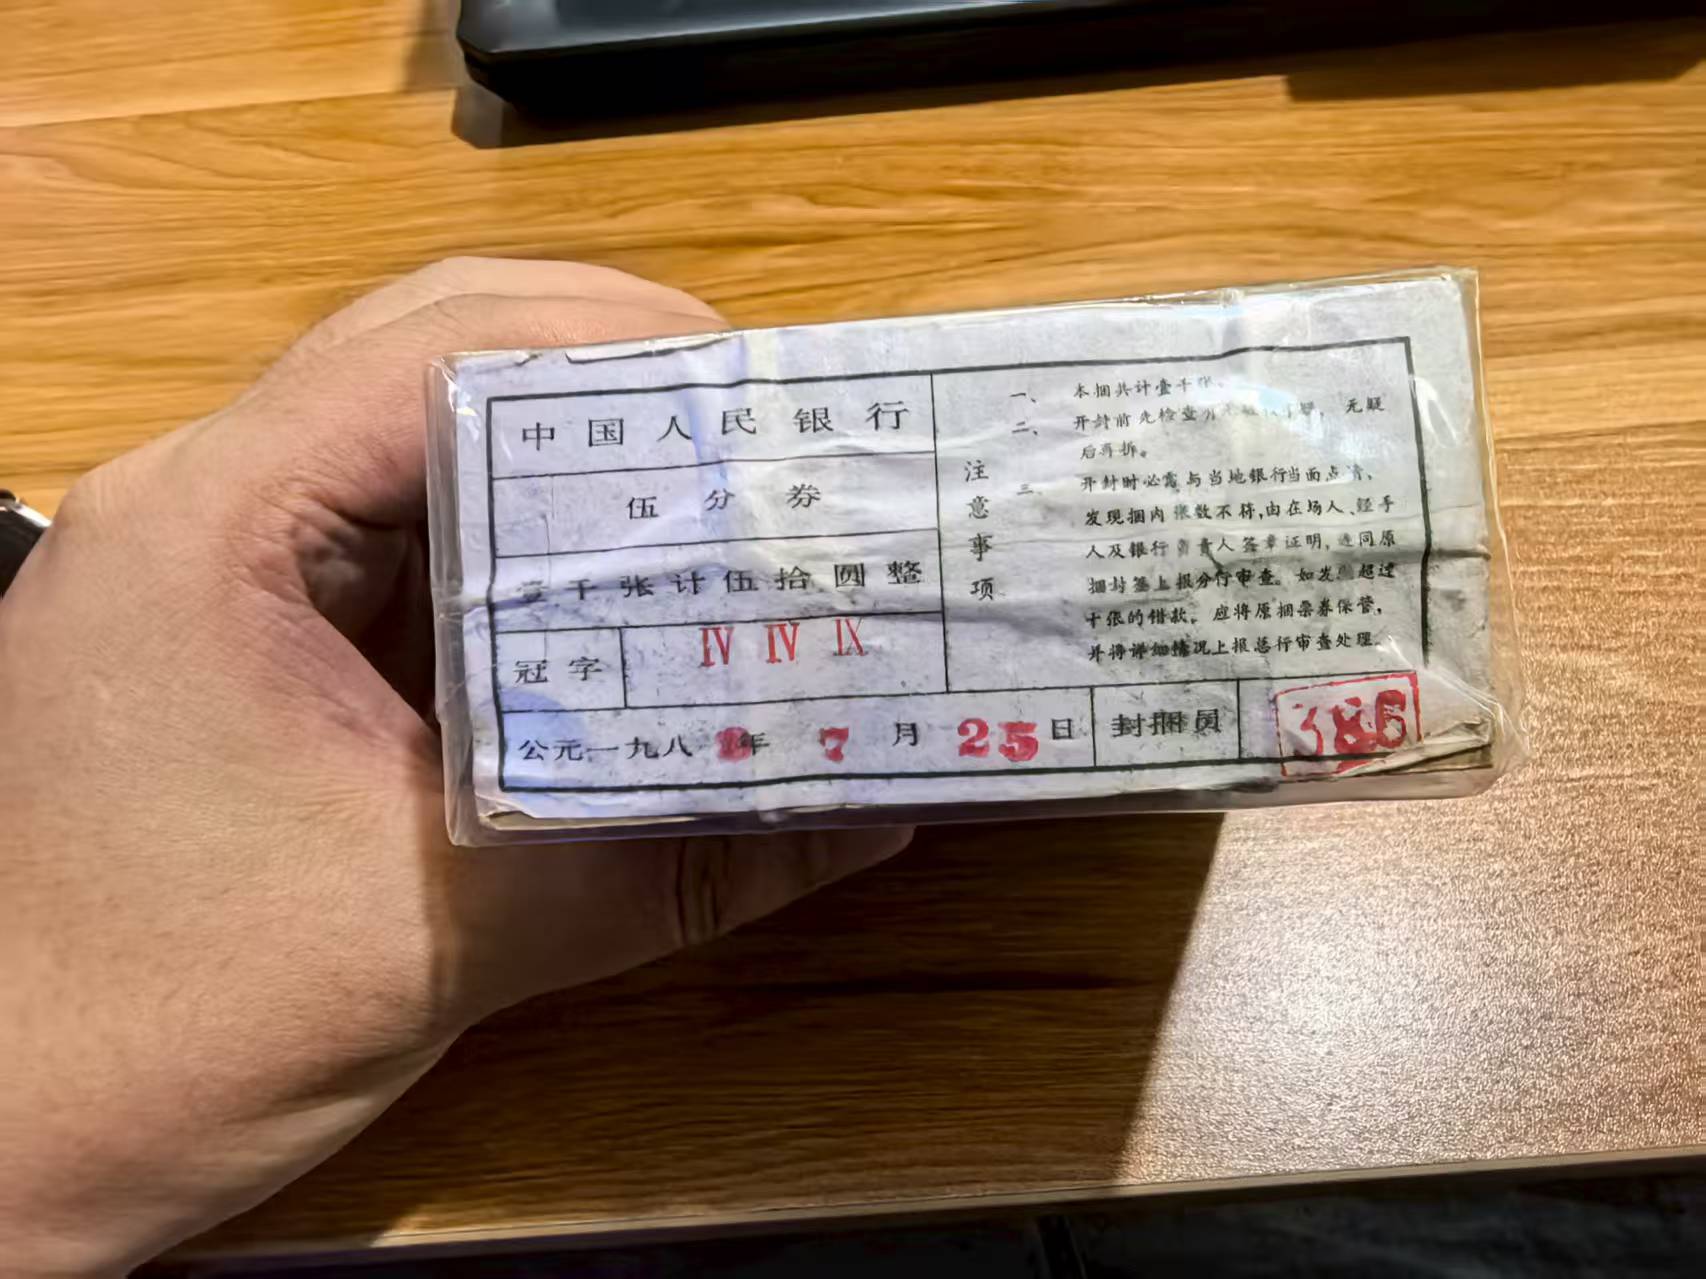 中国人民银行
伍分券
壹千张计伍拾圆整
冠字 IV IV IX
公元一九八 年 7 月 25 日 封捆员 386
注意事项
一、本捆共计壹千张。
二、开封前先检查 无疑
后再拆。
三、开封时必需与当地银行当面点清、
发现捆内张数不符,由在场人、经手
人及银行负责人签章证明,连同原
捆封签上报分行审查。如发 超过
十张的错款,应将原捆票券保管,
并将详细情况上报总行审查处理。